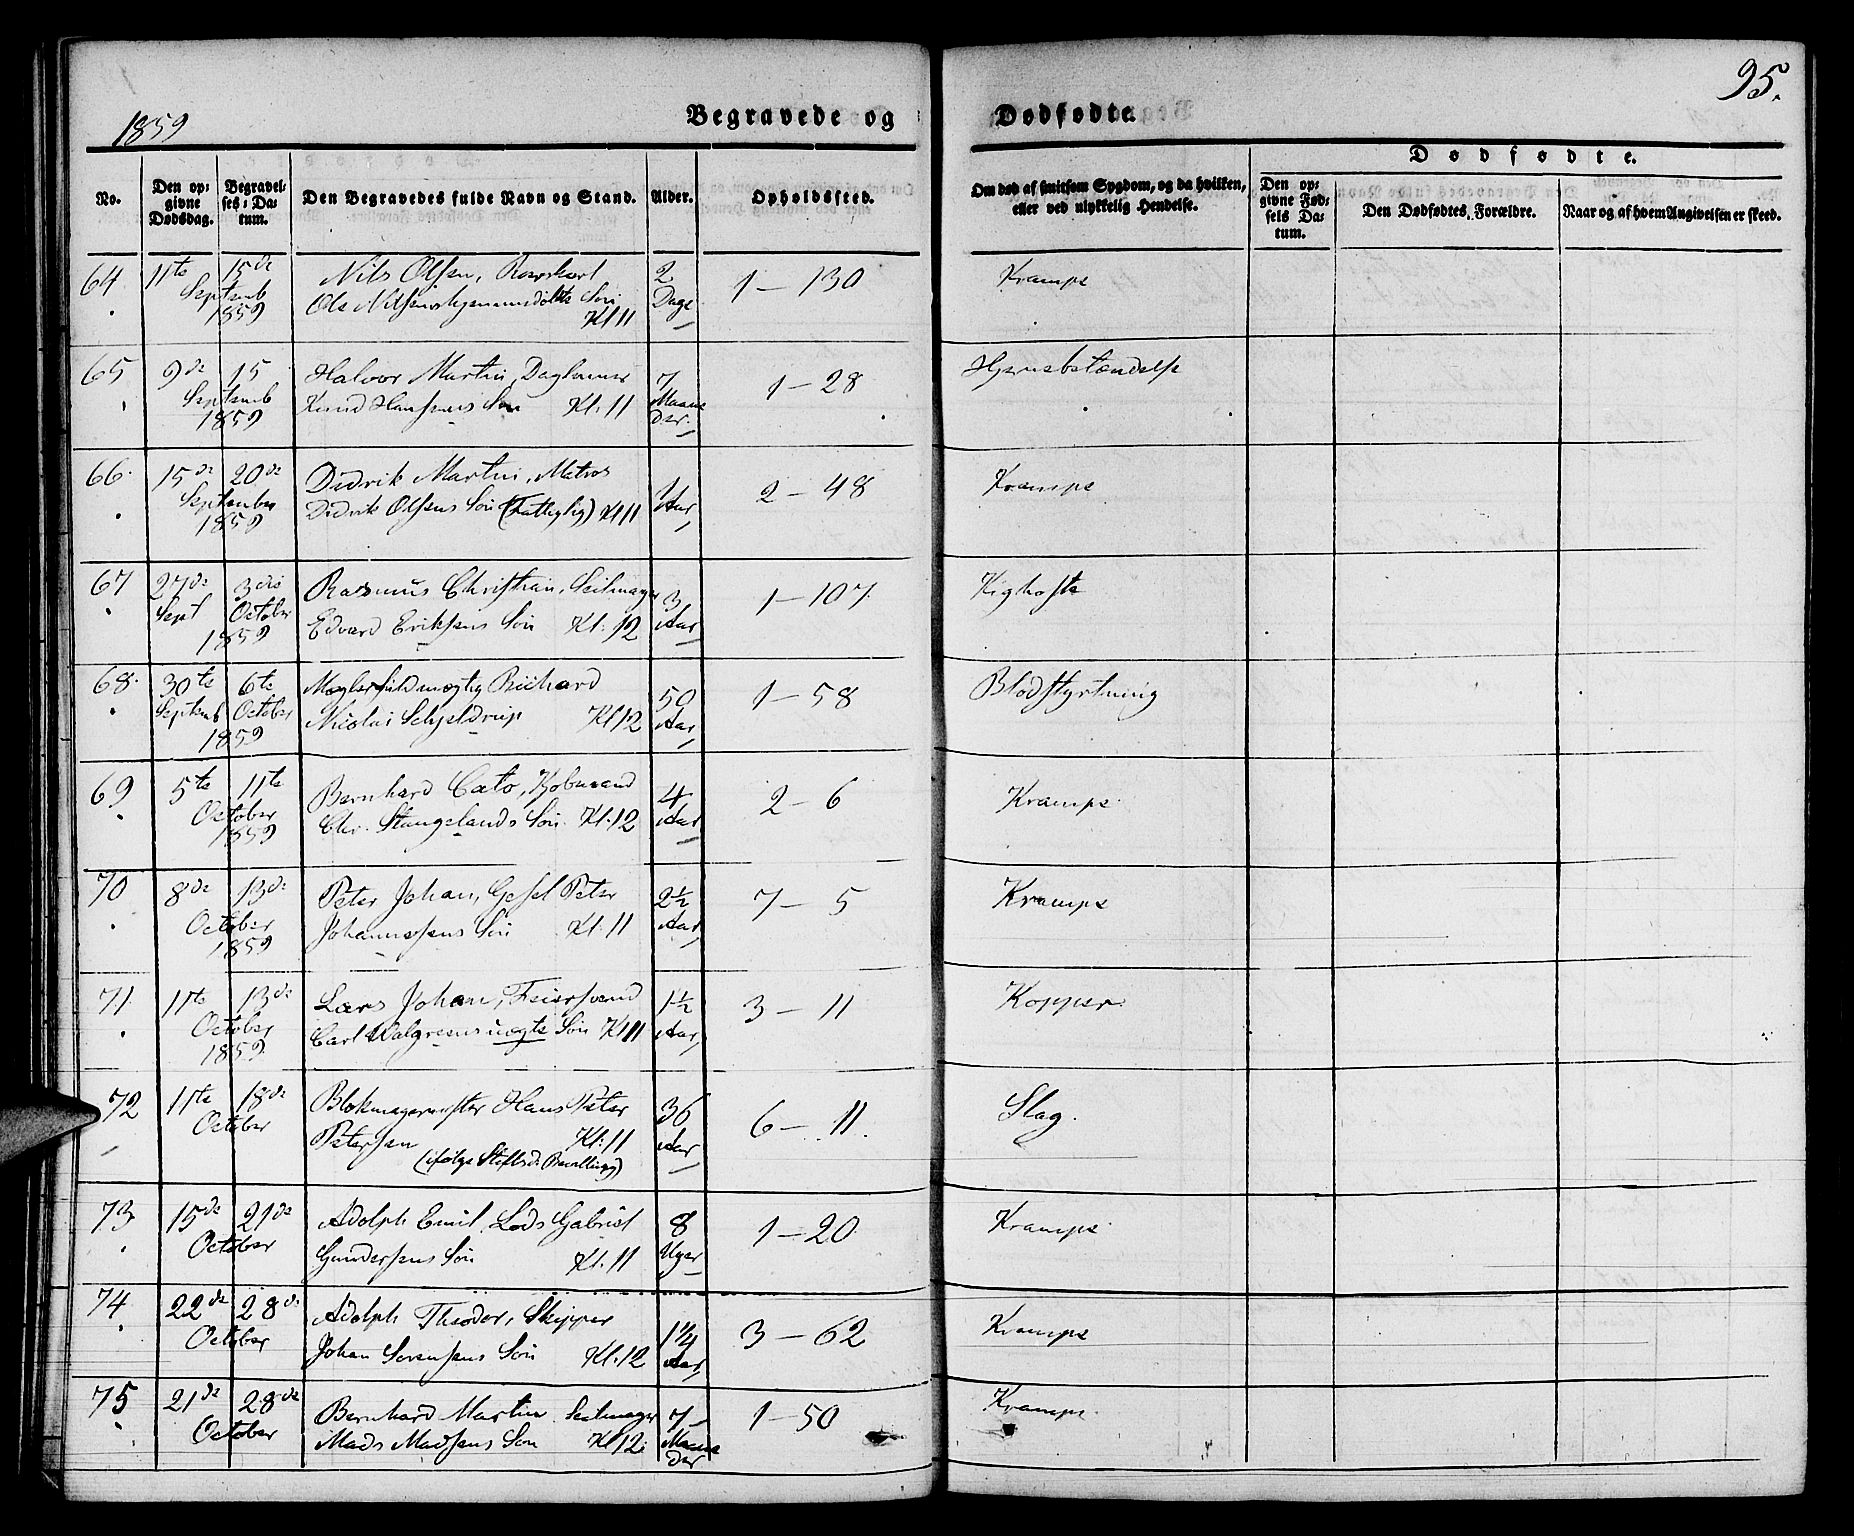 1859
Begravede og Dødfødte.
95.
Dødfødte.
No.
Den opgivne Dødsdag.
Begravelsets-Datum.
Den Begravedes fulde Navn og Stand.
Alder.
Opholdssted.
Om død af smitsom Sygdom, og da hvilken, eller ved ulykkelig Hendelse.
Den opgivne Fødsels Datum.
Den Dødfødtes Forældre.
Naar og af hvem Angivelsen er skeed.
64 11te 15de Nils Olsen, 2 1 – 130 Krampe
Septemb Ole Nilsens Søn Dage
1859 Kl 11
65 9de 15 Halvor Martin, 7 1 – 28 Hjernebetændelse
Septemb Knud Hansens Søn Kl. 11 Maane
1859 der
66. 15de 20de Didrik Martin, Matros 1 2 – 48 Krampe
September Didrik Olsens Søn (Fattiglig) Kl 11 Aar
1859
67 27de 3die Rasmus Christian, Seilmager 3 1 – 107. Kighoste
Sept October Edvard Eriksens Søn Kl. 12 Aar
1859
68. 30te 6te Mæglerfuldmægtig Richard 50 1 – 58 Blodstyrtning
Septemb October Nicolai Schjeldrup Kl 12 Aar
1859
69 5te 11te Bernhard Cato, Kjøbmand 4 2 – 6 Krampe
October Chr. Stangelands Søn. Kl. 12 Aar
1859
70 8de 13de Peter Johan, Gesel Peter 2½ 7 – 5 Krampe
October Johannesens Søn Kl. 11 Aar
1859
71. 11te 13de Lars Johan, Feiersvend 1½ 3 – 11 Kopper
October Carl Walgreens uægte Søn Kl 11 Aar
1859
72 11te 18de Blokmagermester Hans Peter 36 6 – 11. Slag.
October Petersen Kl. 11 Aar
(ifølge Stiftsd. Bevilling)
73 15de 21de Adolph Emil, Lods Gabriel 8 1 – 20. Krampe
October Gundersens Søn Kl. 11 Uger
74 22de 28de Adolph Theodor, Skipper 1¼ 3 – 62 Krampe
October Johan Sørensens Søn Kl. 12 Aar
75 21de 28de Bernhard Martin Seilmager 7 1 – 50 Krampe
October Mads Madsens Søn Kl 12. Maane
der